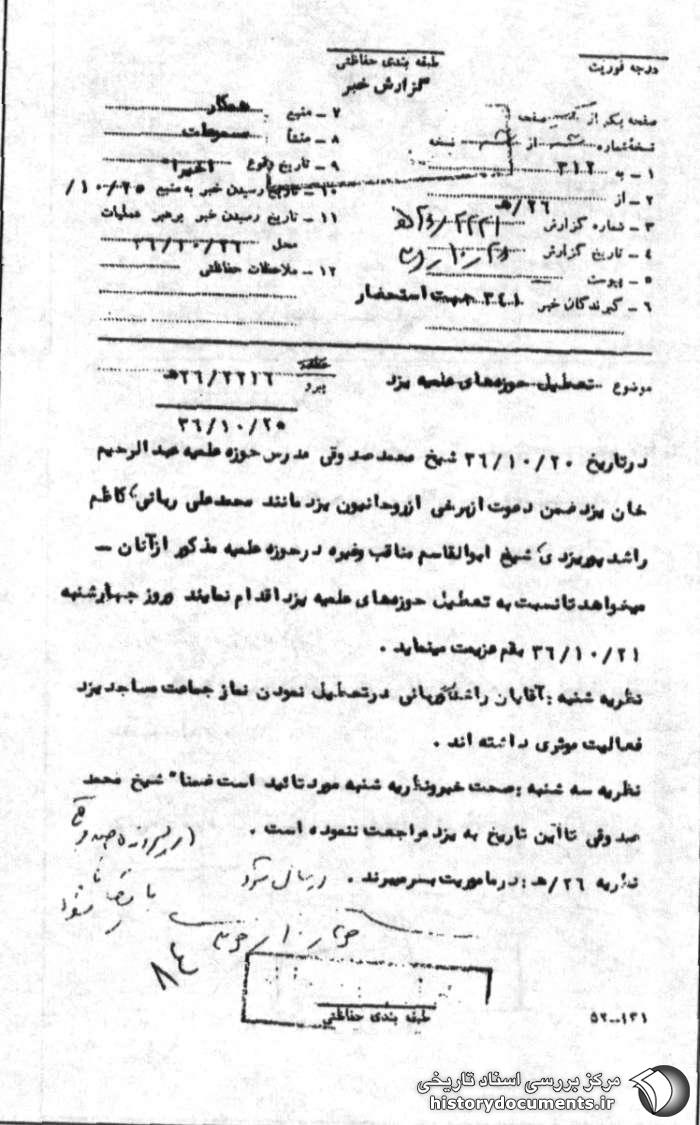 درجه فوریت
طبقه بندی حفاظتی
گزارش خبر
صفحه یکم از یک صفحه
نسخه شماره از نسخه
۱ ـ به ۳۱۲
۲ ـ از ۲۶/ه‍
۳ ـ شماره گزارش
۴ ـ تاریخ گزارش
۵ ـ پیوست
۶ ـ گیرندگان خبر ۳۴۱ جهت استحضار
۷ ـ منبع همکار
۸ ـ منشأ مسموعات
۹ ـ تاریخ وقوع اخیرا"
۱۰ ـ تاریخ رسیدن خبر به منبع
۱۱ ـ تاریخ رسیدن خبر برهبر عملیات
محل ۳۶/۱۰/۲۶
۱۲ ـ ملاحظات حفاظتی
موضوع ـ تعطیل حوزه‌های علمیه یزد
پیرو ۲۶/۲۲۱۶ه‍
۳۶/۱۰/۲۵
درتاریخ ۳۶/۱۰/۲۰ شیخ محمد صدوقی مدرس حوزه علمیه عبدالرحیم
خان یزد ضمن دعوت ازبرخی ازروحانیون یزد مانند محمدعلی ربانی، کاظم
راشد پوریزدی، شیخ ابوالقاسم مناقب وغیره درحوزه علمیه مذکور ازآنان ـ
میخواهد تانسبت به تعطیل حوزه‌های علمیه یزد اقدام نمایند وروز چهارشنبه
۳۶/۱۰/۲۱ بقم عزیمت مینماید .
نظریه شنبه : آقایان راشد و ربانی درتعطیل نمودن نماز جماعت مساجد یزد
فعالیت موثری داشته اند .
نظریه سه شنبه : صحت خبرونظریه شنبه مورد تائید است ضمنا" شیخ محمد
صدوقی تااین تاریخ به یزد مراجعت ننموده است .
نظریه ۲۶/ه‍ : درماموریت بسرمیبرند .
۸۴
طبقه بندی حفاظتی
۵۲ـ۱۳۱
مرکز بررسی اسناد تاریخی
historydocuments.ir